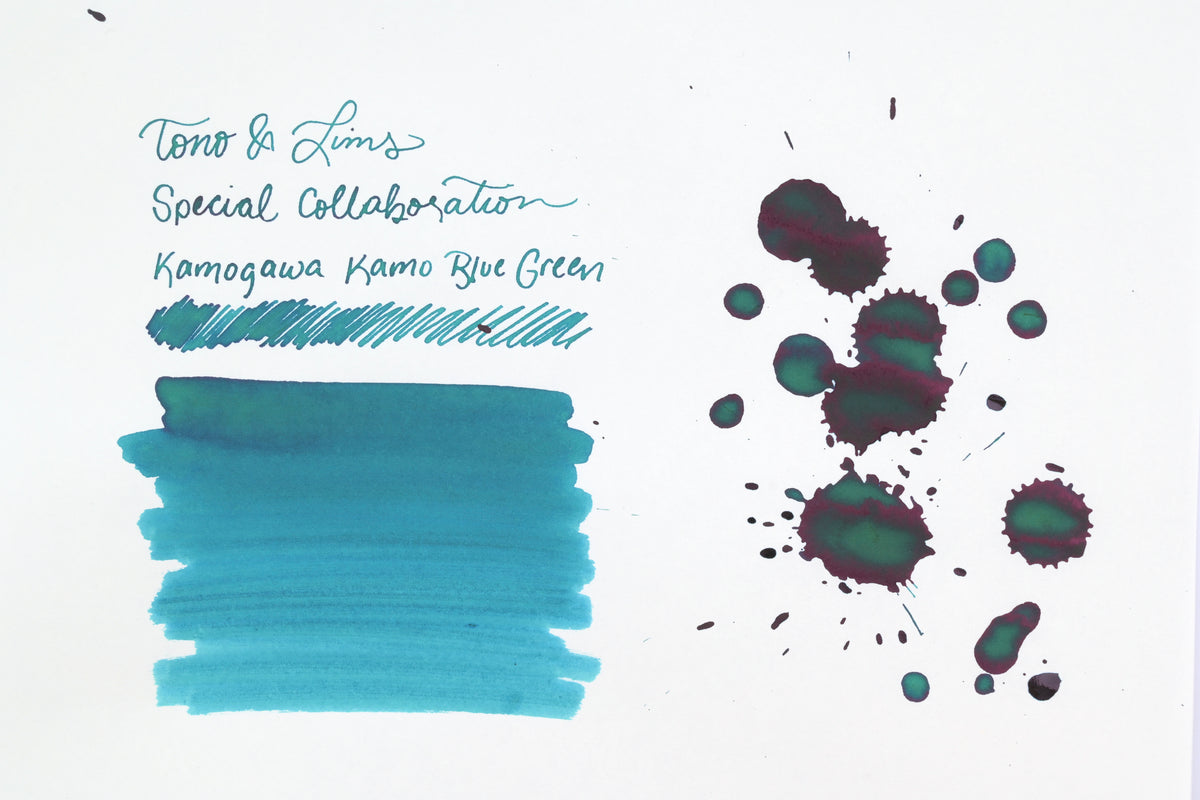 Tono & Lims
Special Collaboration
Kamogawa Kamo Blue Green